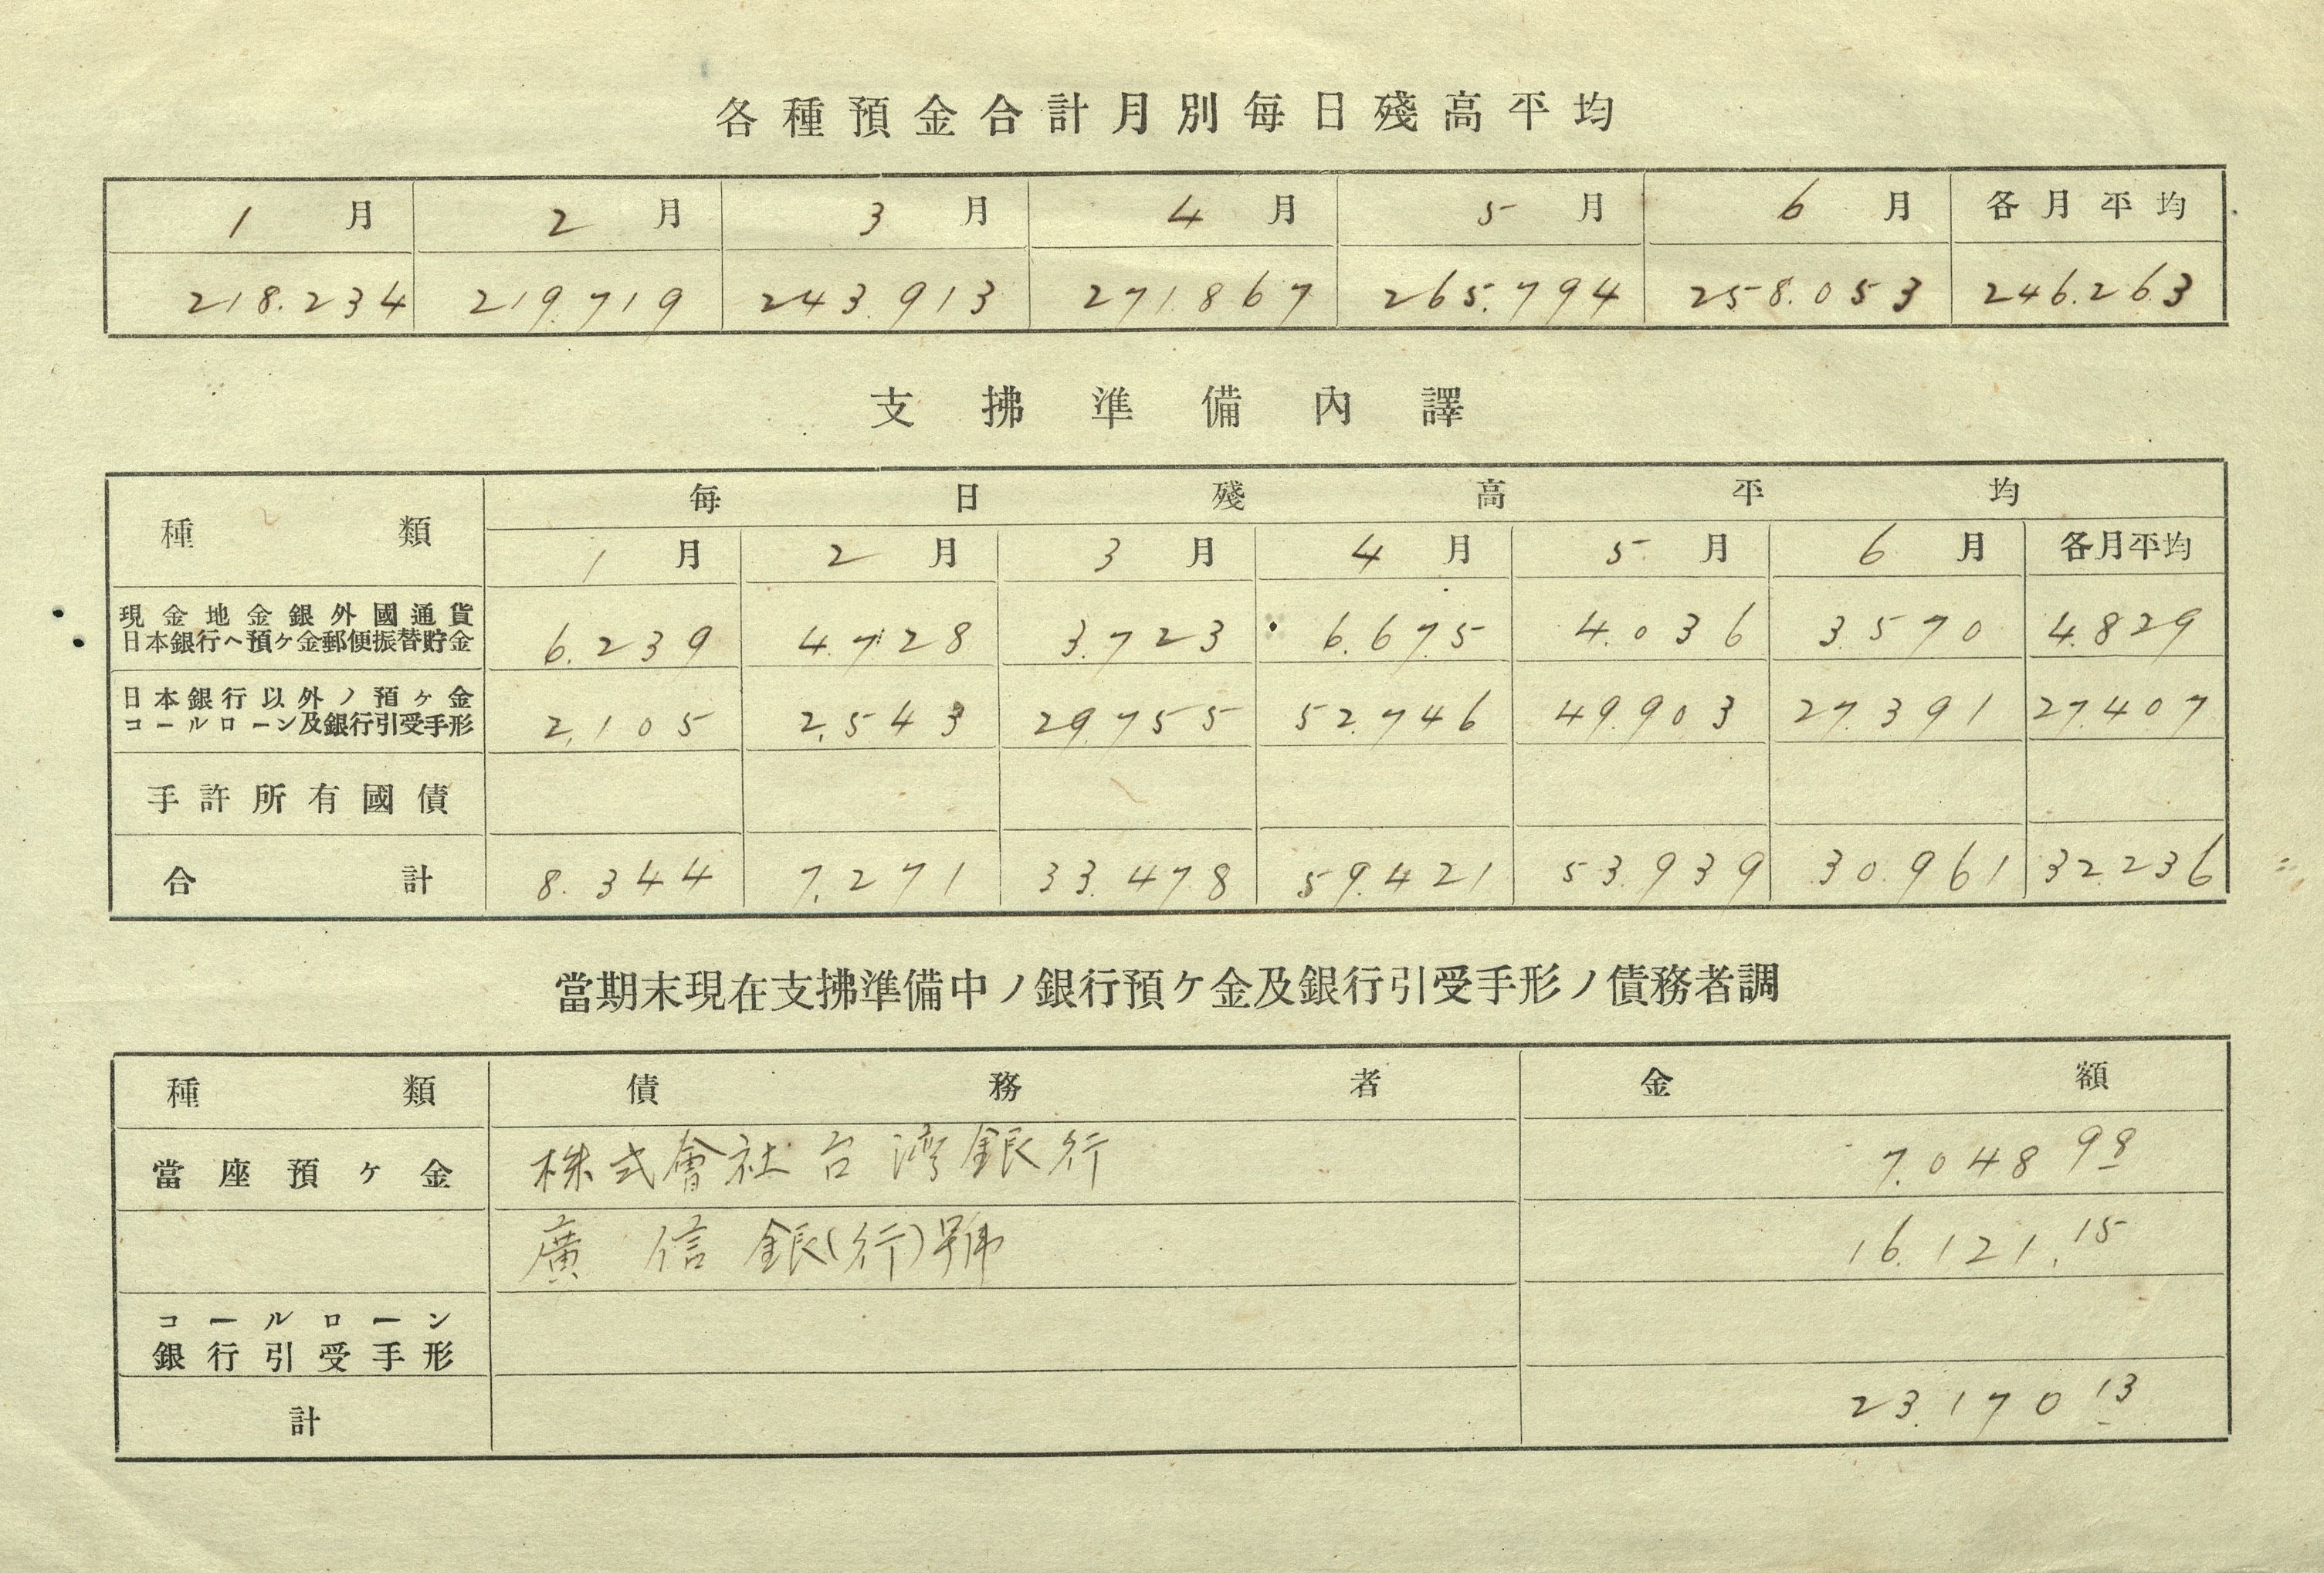 各種預金合計月別每日殘高平均
1月 2月 3月 4月 5月 6月 各月平均
218.234 219.719 243.913 271.867 265.794 258.053 246.263
支拂準備內譯
種類 每日殘高平均
1月 2月 3月 4月 5月 6月 各月平均
現金地金銀外國通貨
日本銀行ヘ預ケ金郵便振替貯金 6.239 4.728 3.723 6.675 4.036 3.570 4.829
日本銀行以外ノ預ケ金
コールローン及銀行引受手形 2.105 2.543 29.755 52.746 49.903 27.391 27.407
手許所有國債
合計 8.344 7.271 33.478 59.421 53.939 30.961 32.236
當期末現在支拂準備中ノ銀行預ケ金及銀行引受手形ノ債務者調
種類 債務者 金額
當座預ケ金 株式會社台湾銀行 7.048 98
廣信銀(行)號 16.121.15
コールローン
銀行引受手形
計 23.170 13